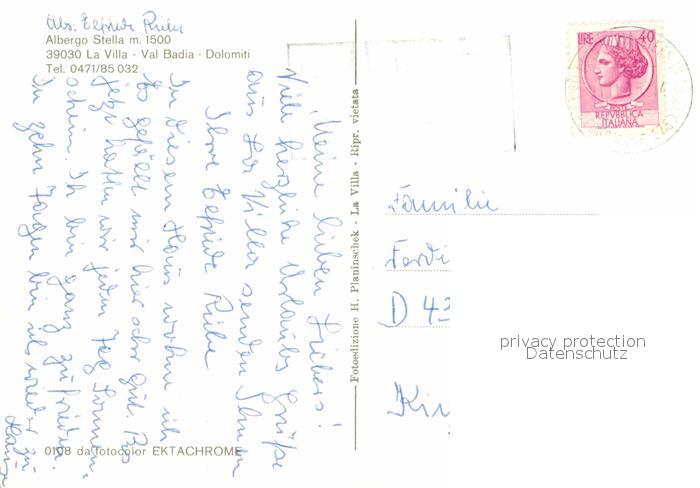 Abs. Elfriede Riehe
Albergo Stella m. 1500
39030 La Villa - Val Badia - Dolomiti
Tel. 0471/85 032
Meine lieben
Viele herzliche Urlaubs Grüße
aus La Villa senden Ihnen
Ihre Elfriede
In diesem Haus wohne ich
Es gefällt mir hier sehr gut. Bis
jetzt hatten wir jeden Tag Sonnen-
schein. Ich bin ganz zufrieden.
In zehn Tagen bin ich wieder zu
Hause
0108 da fotocolor EKTACHROME
Fotoedizione H. Planinschek - La Villa - Ripr. vietata
LIRE 40
POSTE
REPVBBLICA
ITALIANA
Familie
Ferdi
D 43
Kir
privacy protection
Datenschutz